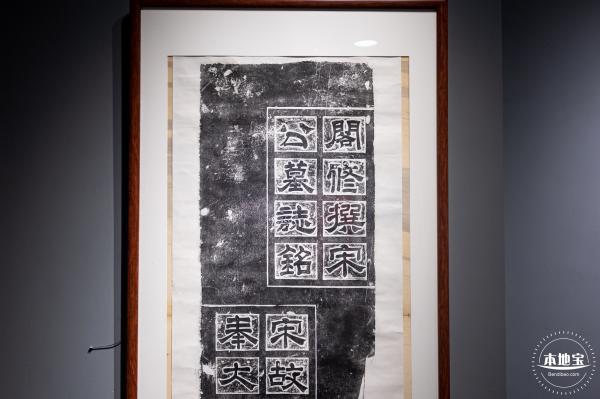 閣修撰宋
公墓誌銘
宋故
奉大
本地宝
Bendibao.com